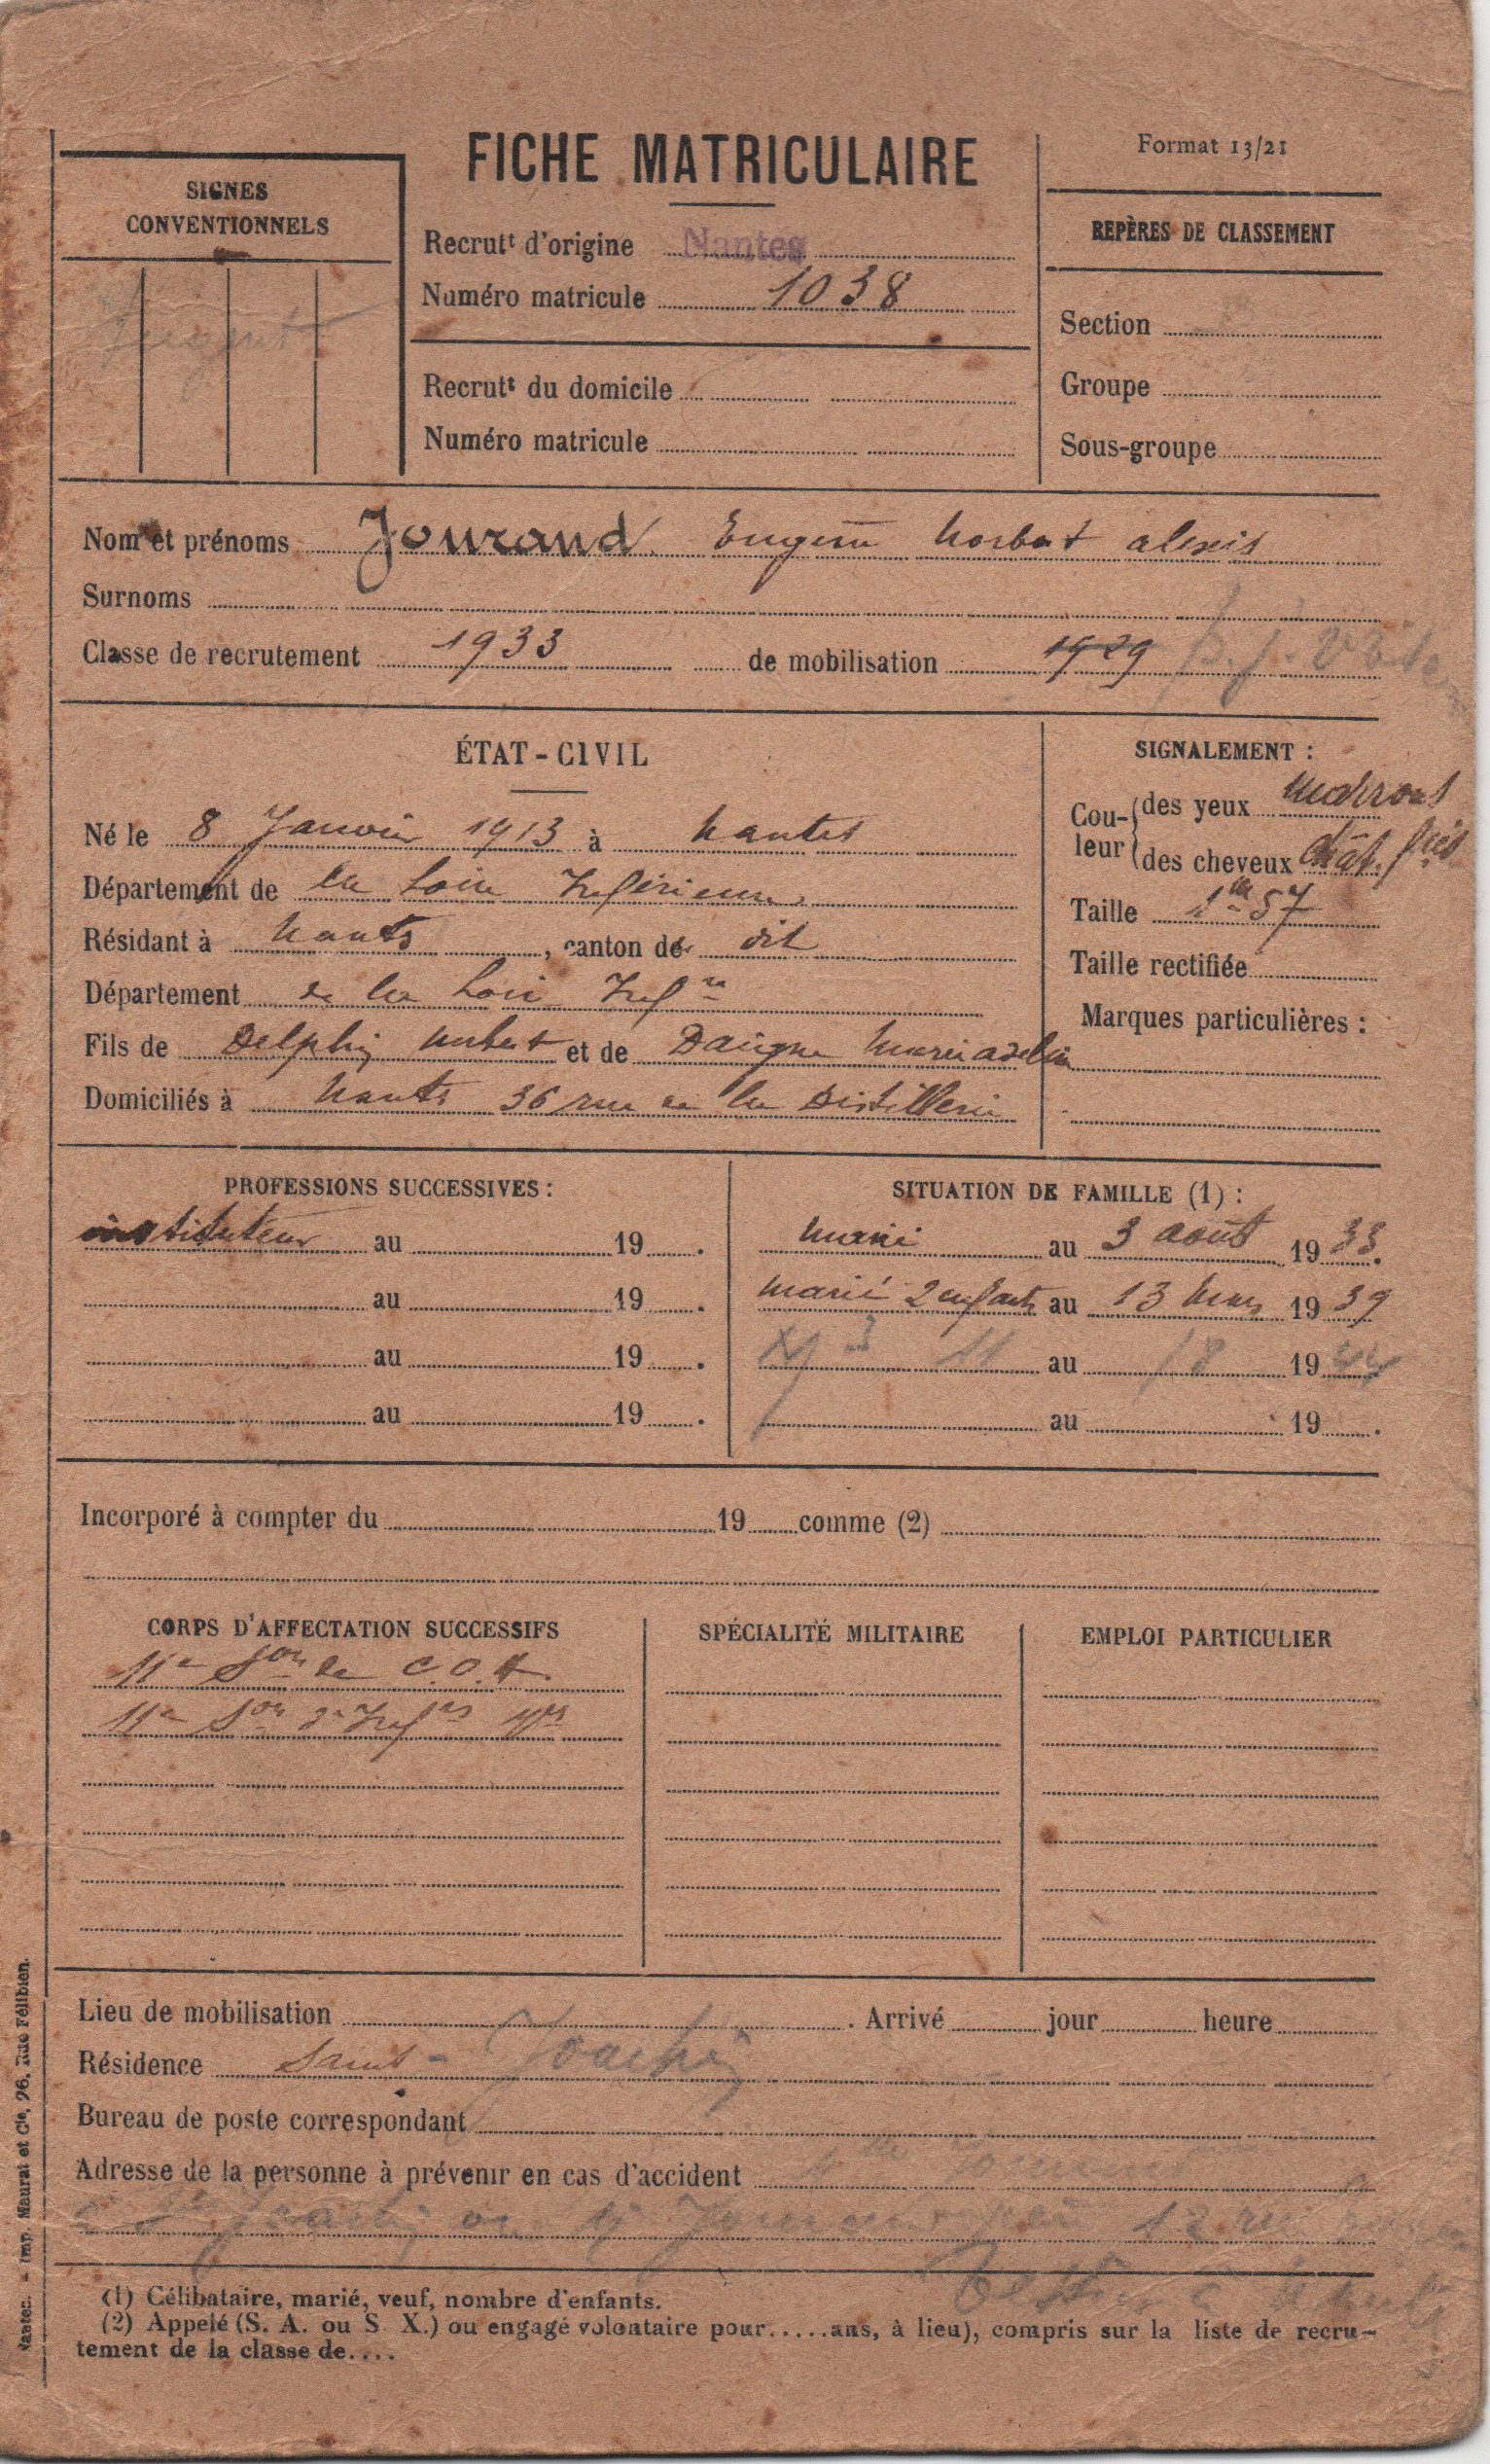 FICHE MATRICULAIRE
Format 13/21
SIGNES
CONVENTIONNELS
Recrutt d'origine Nantes
Numéro matricule 1038
Recrutt du domicile
Numéro matricule
REPÈRES DE CLASSEMENT
Section
Groupe
Sous-groupe
Nom et prénoms Jouraud Eugène Norbert alexis
Surnoms
Classe de recrutement 1933 de mobilisation 1929
ÉTAT-CIVIL
Né le 8 Janvier 1913 à Nantes
Département de la Loire Inférieure
Résidant à Nantes, canton de dit
Département de la Loire Infre
Fils de Delphin Norbert et de Daugne Marie adeline
Domiciliés à Nantes 36 rue de la Distillerie
SIGNALEMENT :
Couleur des yeux marrons
des cheveux chât.
Taille 1m 57
Taille rectifiée
Marques particulières :
PROFESSIONS SUCCESSIVES :
instituteur au 19 .
au 19 .
au 19 .
au 19 .
SITUATION DE FAMILLE (1) :
marié au 3 août 1933.
marié 2 enfants au 13 Mars 1939
au 18 19
au 19 .
Incorporé à compter du 19 comme (2)
CORPS D'AFFECTATION SUCCESSIFS
11e Son de C.O.A.
11e Son d'Infres Mres
SPÉCIALITÉ MILITAIRE
EMPLOI PARTICULIER
Lieu de mobilisation . Arrivé jour heure
Résidence Saint-Joachim
Bureau de poste correspondant
Adresse de la personne à prévenir en cas d'accident
(1) Célibataire, marié, veuf, nombre d'enfants.
(2) Appelé (S. A. ou S. X.) ou engagé volontaire pour.....ans, à lieu), compris sur la liste de recru-
tement de la classe de....
Nantes. - Imp. Maurat et Cie, 26, Rue Félibien.